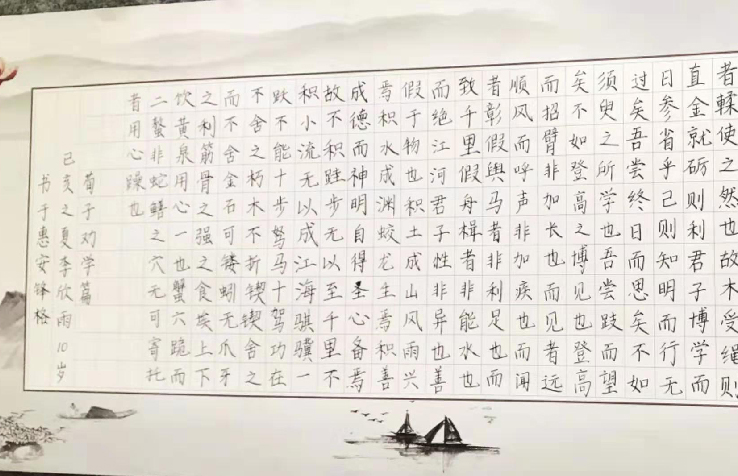 者輮使之然也故木受绳则
直金就砺则利君子博学而
日参省乎己则知明而行无
过矣吾尝终日而思矣不如
须臾之所学也吾尝跂而望
矣不如登高之博见也登高
而招臂非加长也而见者远
顺风而呼声非加疾也而闻
者彰假舆马者非利足也而
致千里假舟楫者非能水也
而绝江河君子性非异也善
假于物也积土成山风雨兴
焉积水成渊蛟龙生焉积善
成德而神明自得圣心备焉
故不积跬步无以至千里不
积小流无以成江海骐骥一
跃不能十步驽马十驾功在
不舍之朽木不折锲锲舍之
而不舍金石可镂蚓无爪牙
之利筋骨之强之食埃上下
饮黄泉用心一也蟹六跪而
二螯非蛇鳝之穴无可寄托
者用心躁也
荀子劝学篇
己亥之夏李欣雨10岁
书于惠安锋格